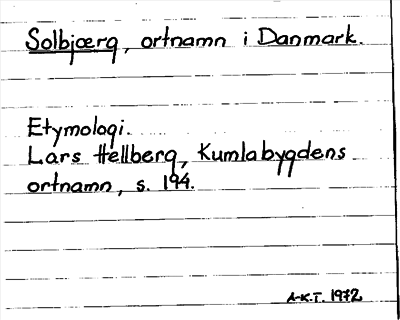 Solbjærg, ortnamn i Danmark.
Etymologi.
Lars Hellberg, Kumlabygdens
ortnamn, s. 194.
A-K.T. 1972